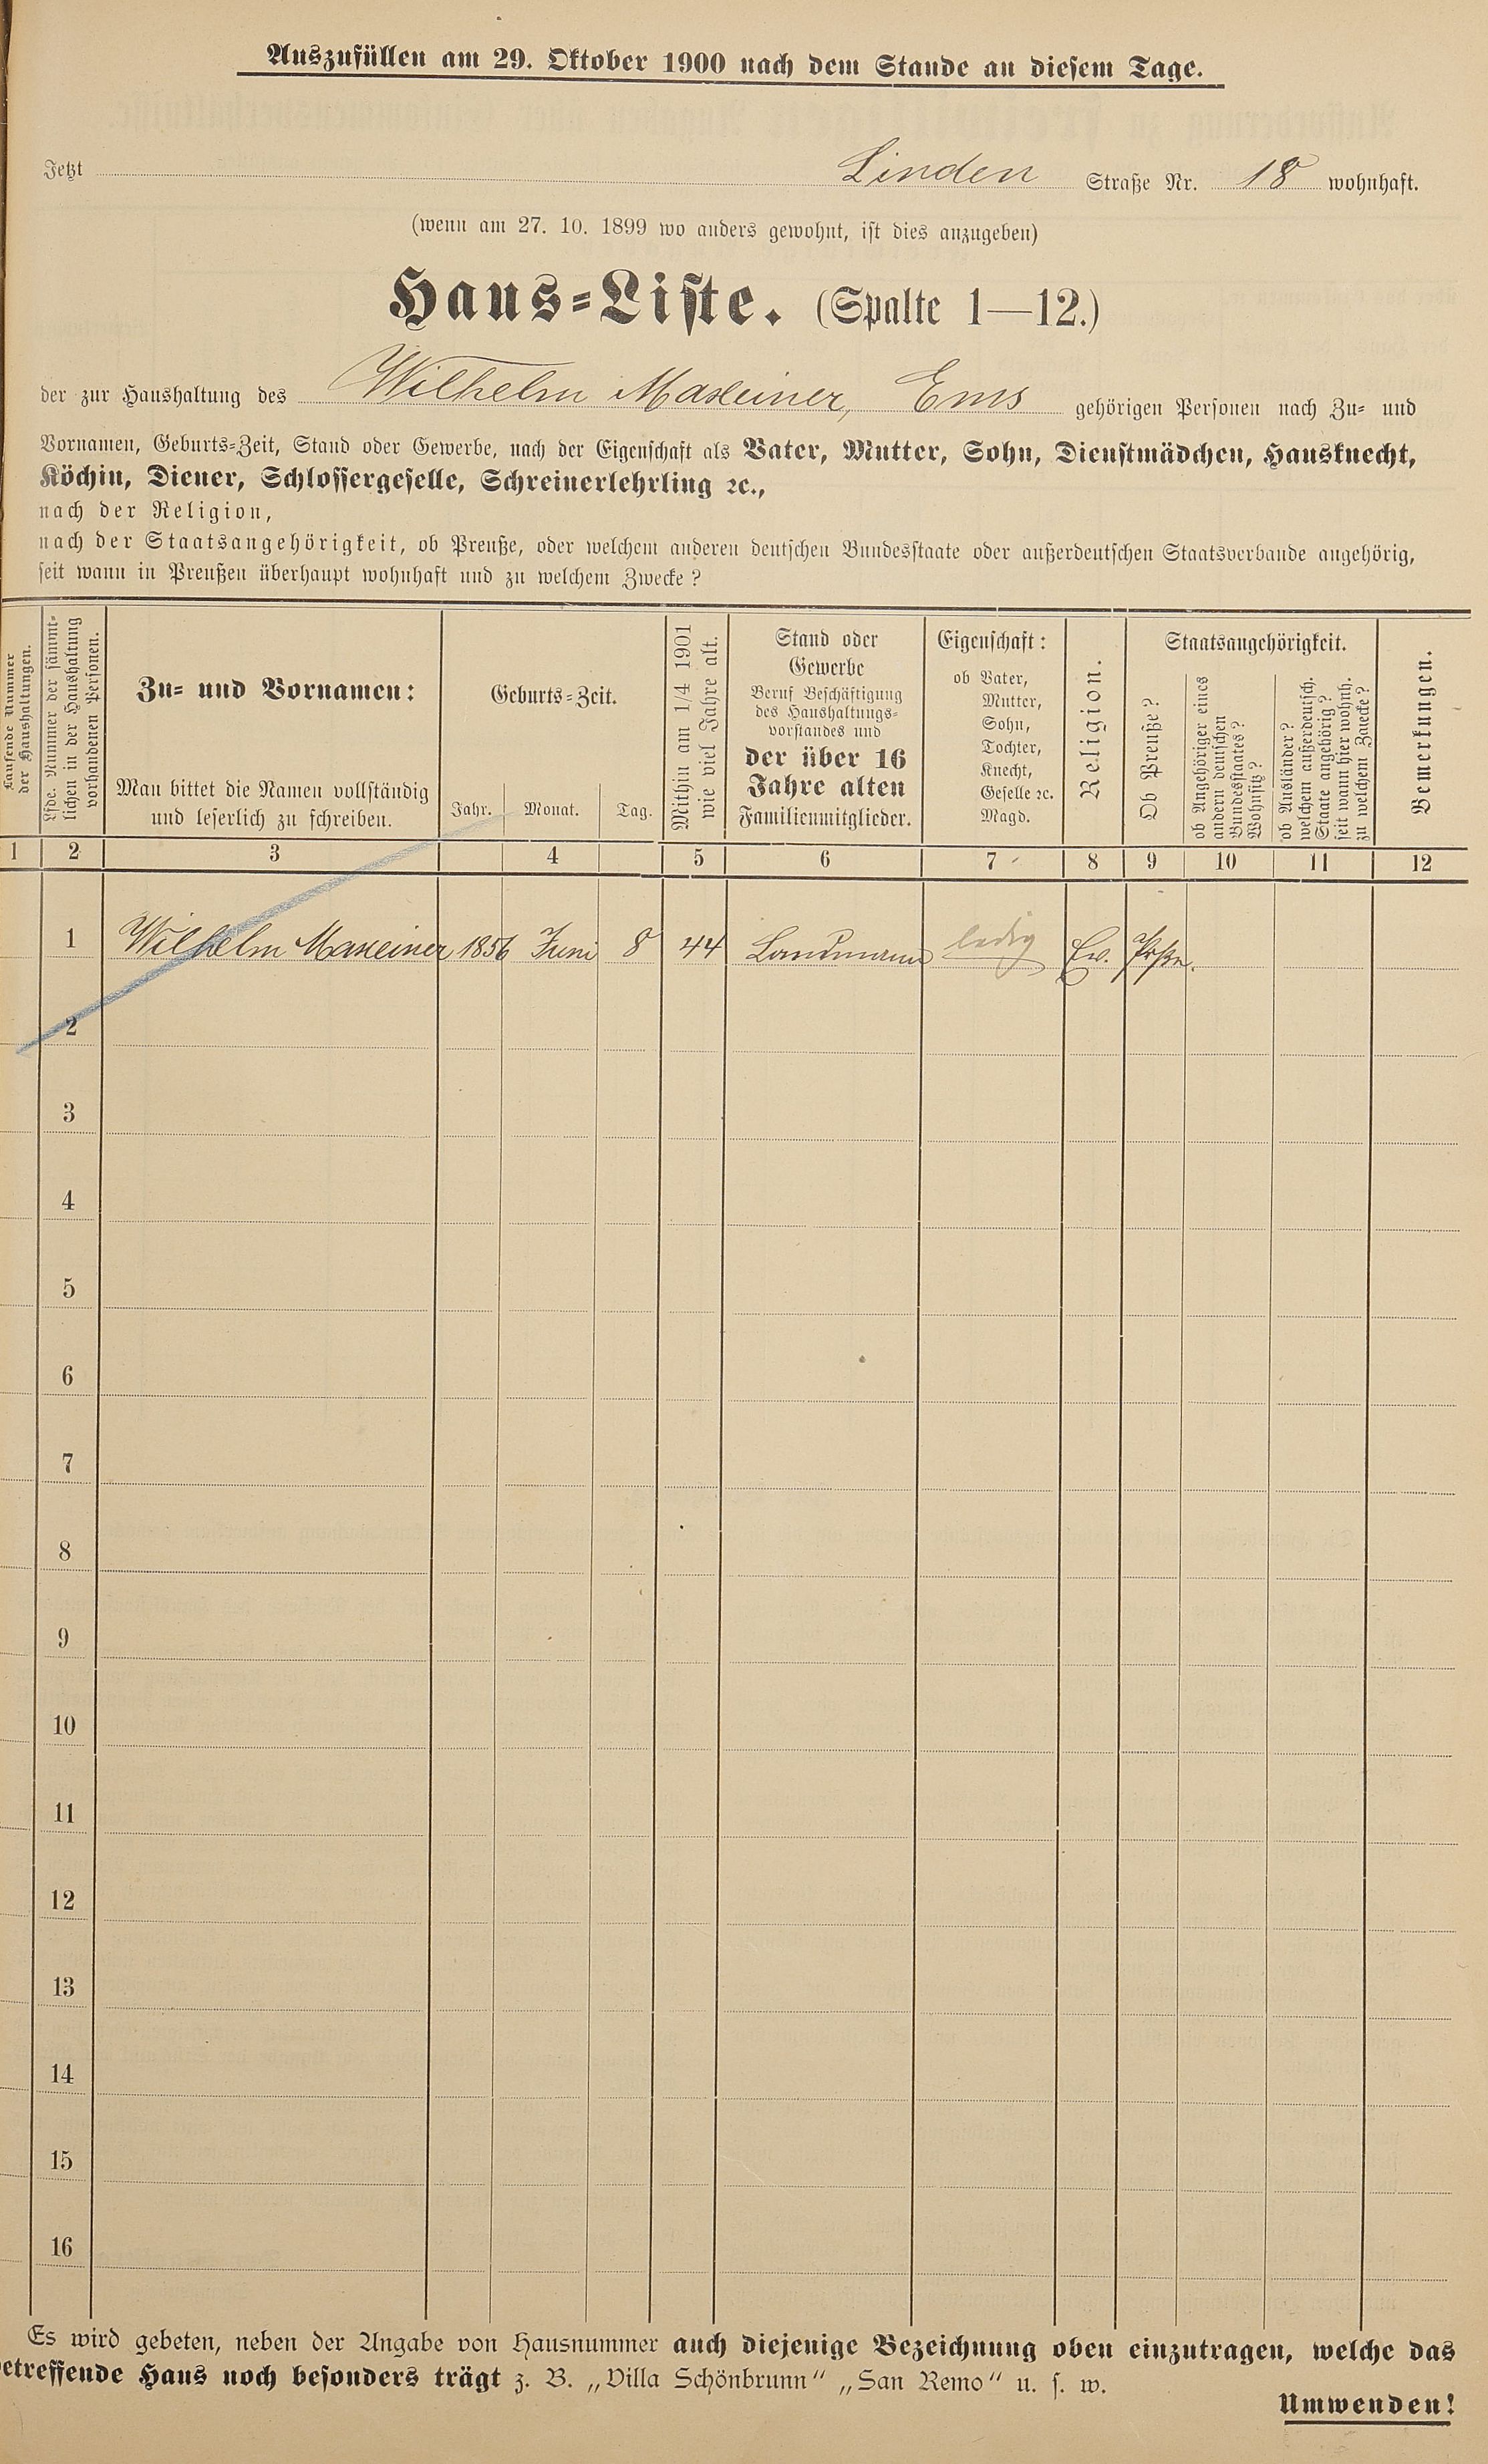 Auszufüllen am 29. Oktober 1900 nach dem Stande an diesem Tage.
Jetzt Linden Straße Nr. 18 wohnhaft.
(wenn am 27. 10. 1899 wo anders gewohnt, ist dies anzugeben)
Haus=Liste. (Spalte 1—12.)
der zur Haushaltung des Wilhelm Maxeiner, Ems gehörigen Personen nach Zu= und
Vornamen, Geburts=Zeit, Stand oder Gewerbe, nach der Eigenschaft als Vater, Mutter, Sohn, Dienstmädchen, Hausknecht,
Köchin, Diener, Schlossergeselle, Schreinerlehrling ꝛc.,
nach der Religion,
nach der Staatsangehörigkeit, ob Preuße, oder welchem anderen deutschen Bundesstaate oder außerdeutschen Staatsverbande angehörig,
seit wann in Preußen überhaupt wohnhaft und zu welchem Zwecke?
Laufende Nummer
der Haushaltungen.
Lfde. Nummer der sämmt=
lichen in der Haushaltung
vorhandenen Personen.
Zu= und Vornamen:
Man bittet die Namen vollständig
und leserlich zu schreiben.
Geburts=Zeit.
Jahr. Monat. Tag.
Mithin am 1/4 1901
wie viel Jahre alt.
Stand oder
Gewerbe
Beruf Beschäftigung
des Haushaltungs=
vorstandes und
der über 16
Jahre alten
Familienmitglieder.
Eigenschaft:
ob Vater,
Mutter,
Sohn,
Tochter,
Knecht,
Geselle ꝛc.
Magd.
Religion.
Staatsangehörigkeit.
Ob Preuße?
ob Angehöriger eines
andern deutschen
Bundesstaates?
Wohnsitz?
ob Ausländer?
welchem außerdeutsch.
Staate angehörig?
seit wann hier wohnh.
zu welchem Zwecke?
Bemerkungen.
1 2 3 4 5 6 7 8 9 10 11 12
1 Wilhelm Maxeiner 1856 Juni 8 44 Landmann ledig Ev. Prße.
2
3
4
5
6
7
8
9
10
11
12
13
14
15
16
Es wird gebeten, neben der Angabe von Hausnummer auch diejenige Bezeichnung oben einzutragen, welche das
betreffende Haus noch besonders trägt z. B. „Villa Schönbrunn“ „San Remo“ u. s. w.
Umwenden!